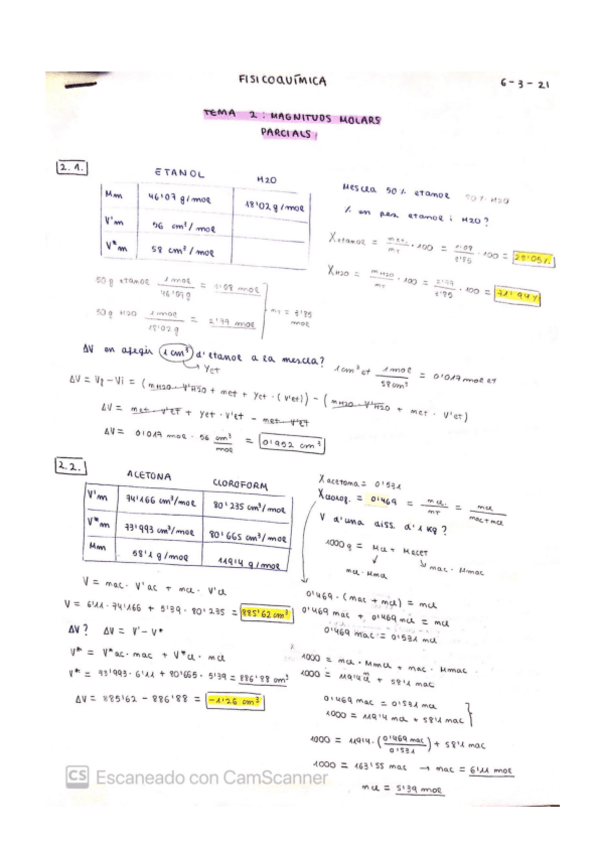 FISICOQUÍMICA
6-3-21
TEMA 2: MAGNITUDS MOLARS
PARCIALS
2.1.
ETANOL H2O
Mm 46'07 g/mol 18'02 g/mol
V'm 56 cm³/mol
V*m 58 cm³/mol
Mescla 50% etanol 50% H2O
% en pes etanol i H2O?
Xetanol = met/mT · 100 = 1'08/3'85 · 100 = 28'05%
XH2O = mH2O/mT · 100 = 2'77/3'85 · 100 = 71'94%
50 g etanol 1 mol/46'07g = 1'08 mol
50g H2O 1 mol/18'02 g = 2'77 mol
mT = 3'85 mol
ΔV en afegir 1 cm³ d'etanol a la mescla?
Yet
1 cm³ et 1 mol/58 cm³ = 0'017 mol et
ΔV = Vf - Vi = (mH2O · V'H2O + met + Yet · (V'et)) - (mH2O · V'H2O + met · V'et)
ΔV = met · V'ET + Yet · V'et - met · V'ET
ΔV = 0'017 mol · 56 cm³/mol = 0'952 cm³
2.2.
ACETONA CLOROFORM
V'm 74'166 cm³/mol 80'235 cm³/mol
V*m 73'993 cm³/mol 80'665 cm³/mol
Mm 58'1 g/mol 119'4 g/mol
Xacetona = 0'531
Xclorof. = 0'469 = mcl/mT = mcl/mac+mcl
V d'una diss. d'1 kg?
1000 g = Mcl + Macet
mcl · Mmcl mac · Mmac
V = mac · V'ac + mcl · V'cl
V = 6'11 · 74'166 + 5'39 · 80'235 = 885'62 cm³
ΔV? ΔV = V' - V*
V* = V*ac · mac + V*cl · mcl
V* = 73'993 · 6'11 + 80'665 · 5'39 = 886'88 cm³
ΔV = 885'62 - 886'88 = -1'26 cm³
0'469 · (mac + mcl) = mcl
0'469 mac + 0'469 mcl = mcl
0'469 mac = 0'531 mcl
1000 = mcl · Mmcl + mac · Mmac
1000 = 119'4 mcl + 58'1 mac
0'469 mac = 0'531 mcl
1000 = 119'4 mcl + 58'1 mac
1000 = 119'4 · (0'469 mac/0'531) + 58'1 mac
1000 = 163'55 mac → mac = 6'11 mol
mcl = 5'39 mol
CS Escaneado con CamScanner